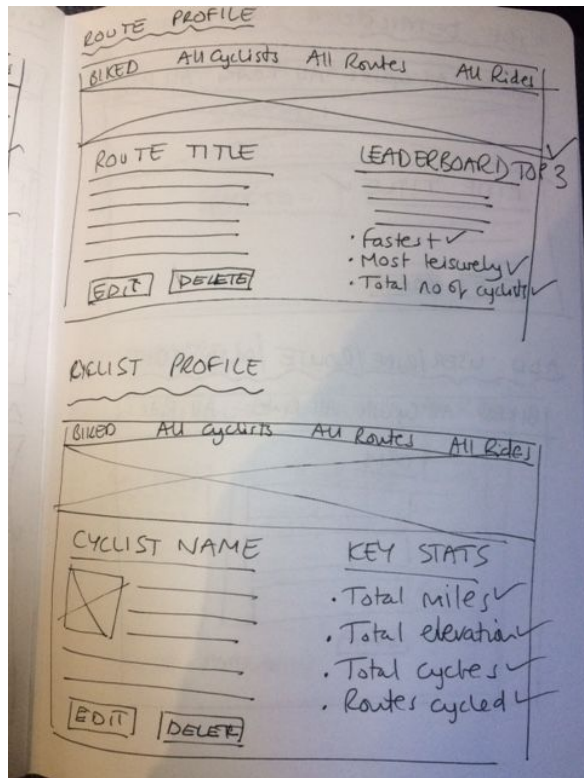 ROUTE PROFILE
BIKED All Cyclists All Routes All Rides
ROUTE TITLE
EDIT DELETE
LEADERBOARD TOP 3
· Fastest ✓
· Most leisurely ✓
· Total no of cyclists ✓
CYCLIST PROFILE
BIKED All Cyclists All Routes All Rides
CYCLIST NAME
EDIT DELETE
KEY STATS
· Total miles ✓
· Total elevation ✓
· Total cycles ✓
· Routes cycled ✓